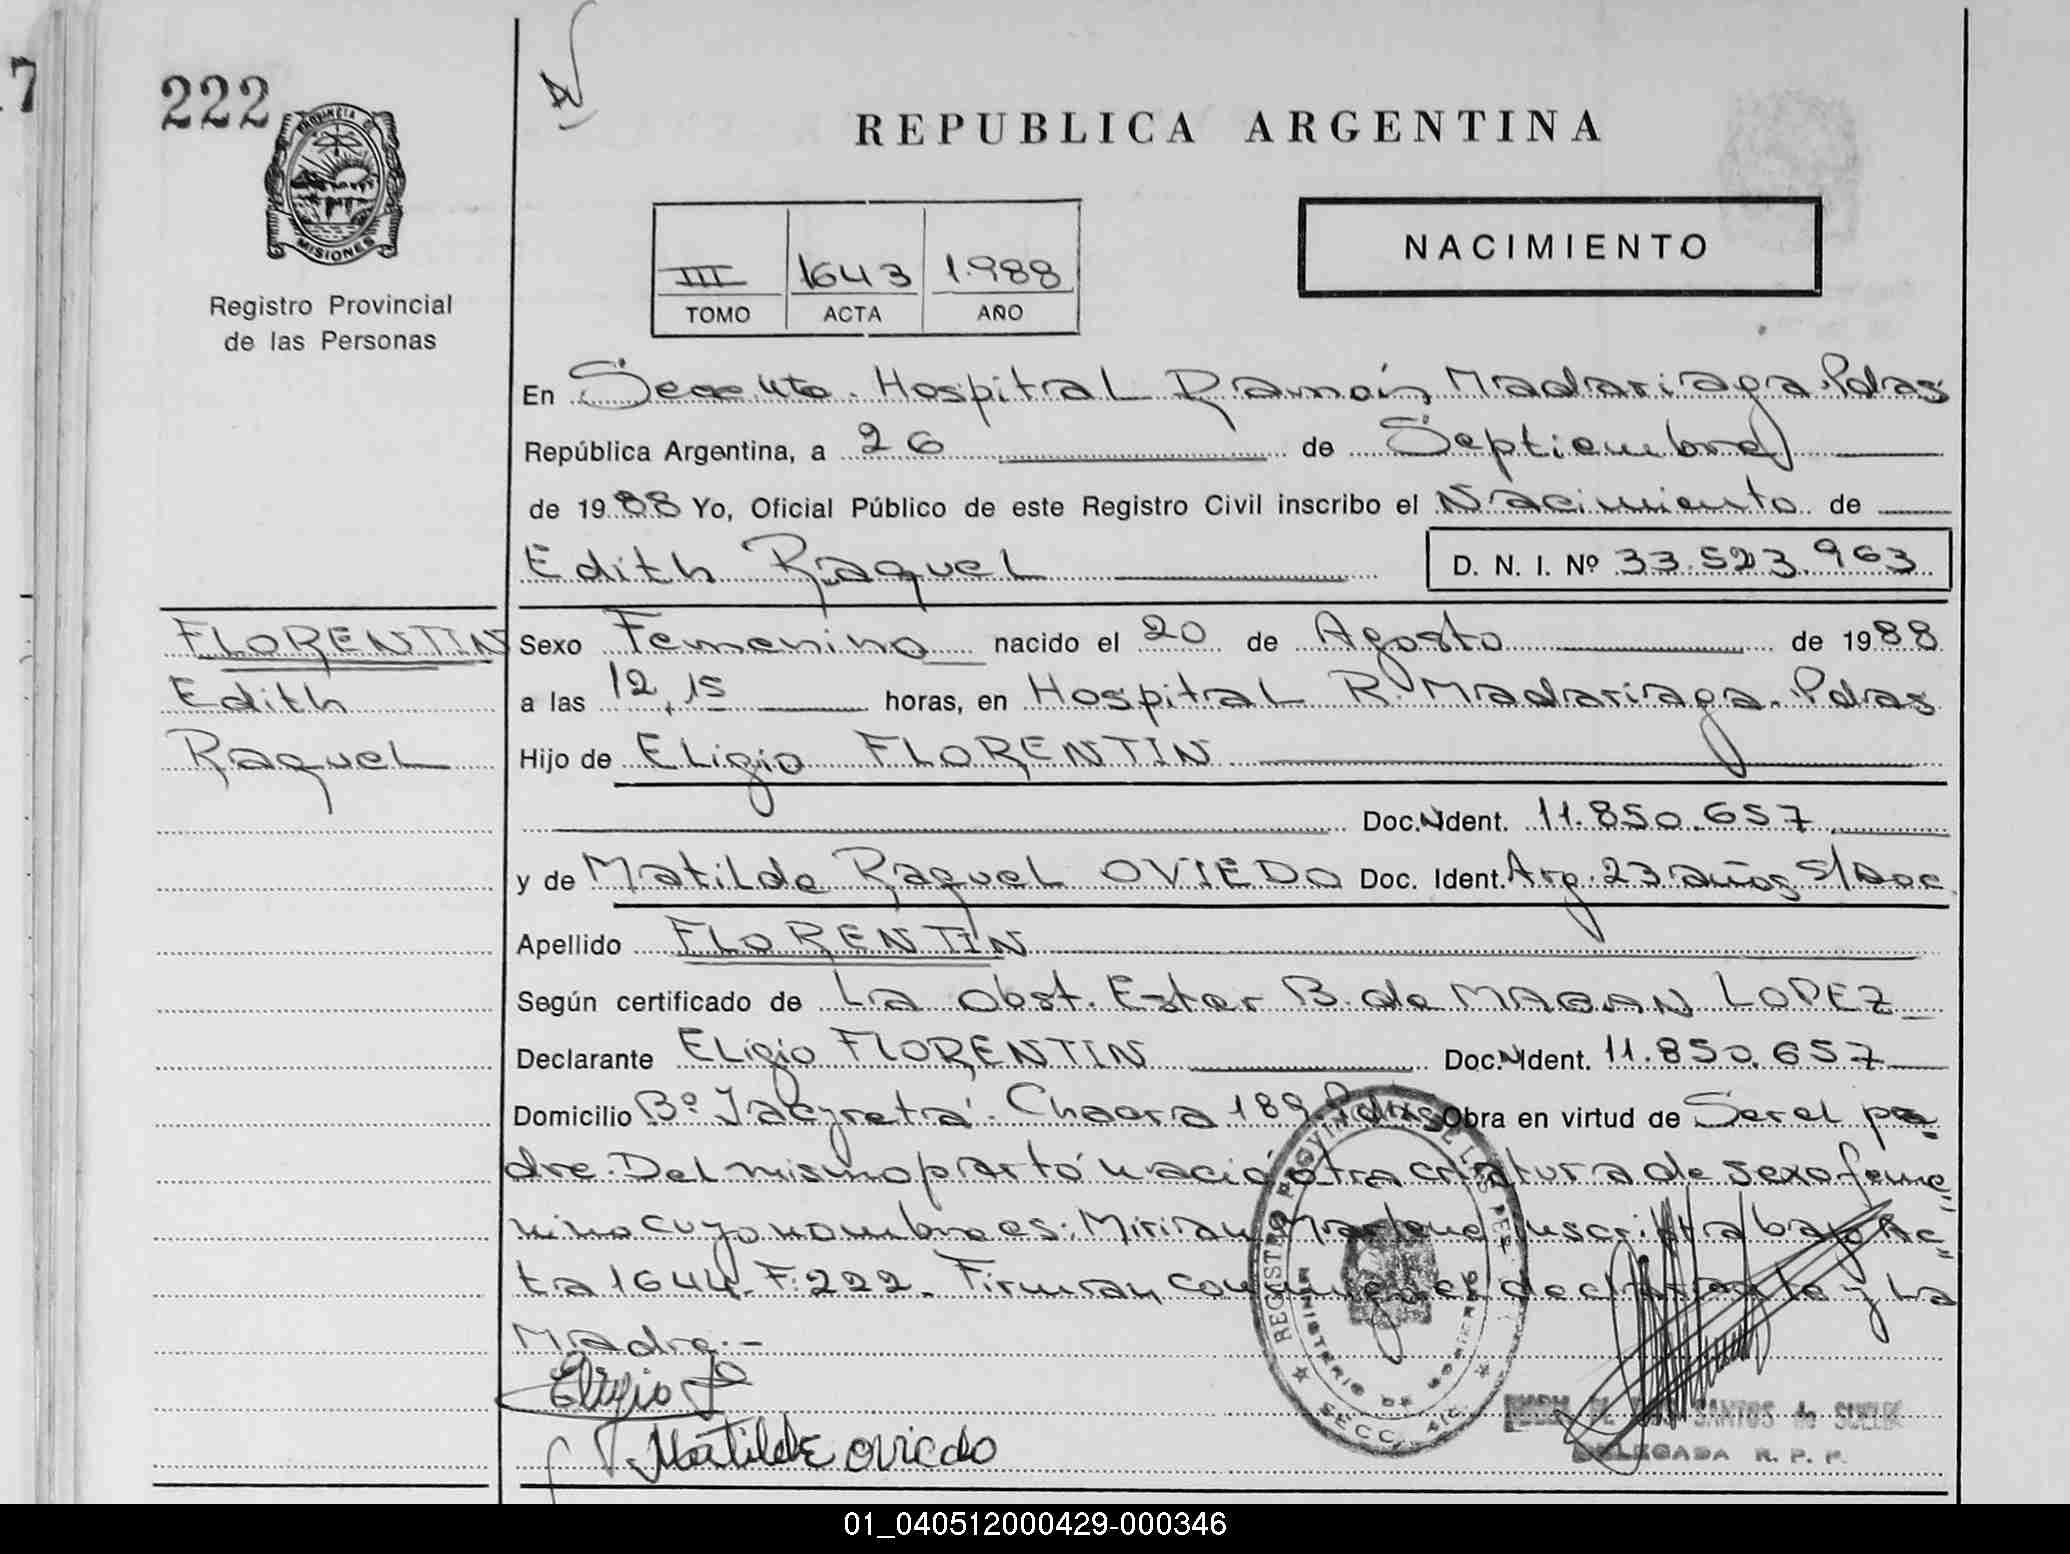 222
REPUBLICA ARGENTINA
PROVINCIA DE
MISIONES
Registro Provincial
de las Personas
III 1643 1.988
TOMO ACTA AÑO
NACIMIENTO
En Hospital Ramón Madariaga. Pdas
República Argentina, a 26 de Septiembre
de 1988 Yo, Oficial Público de este Registro Civil inscribo el Nacimiento de
Edith Raquel
D. N. I. Nº 33.523.963
FLORENTIN
Edith
Raquel
Sexo Femenino nacido el 20 de Agosto de 1988
a las 12,15 horas, en Hospital R. Madariaga. Pdas
Hijo de Eligio FLORENTIN
Doc. N Ident. 11.850.657
y de Matilde Raquel OVIEDO Doc. Ident. Arg. 23 años s/Doc
Apellido FLORENTIN
Según certificado de La Obst. Ester B. de MAGAN LOPEZ
Declarante Eligio FLORENTIN Doc. N Ident. 11.850.657
Domicilio Bº Yacyretá. Chacra 189. Pdas Obra en virtud de Ser el pa-
dre. Del mismo parto nació otra criatura de sexo feme-
nino cuyo nombre es: Mirian Marlene inscripta bajo Ac-
ta 1644. F: 222. Firman conmigo el declarante y La
Madre.-
Eligio F
Matilde Oviedo
REGISTRO PROVINCIAL DE LAS PER
MINISTERIO DE GOBIERNO
SECC.
SANTOS de
DELEGADA R. P. P.
01_040512000429-000346